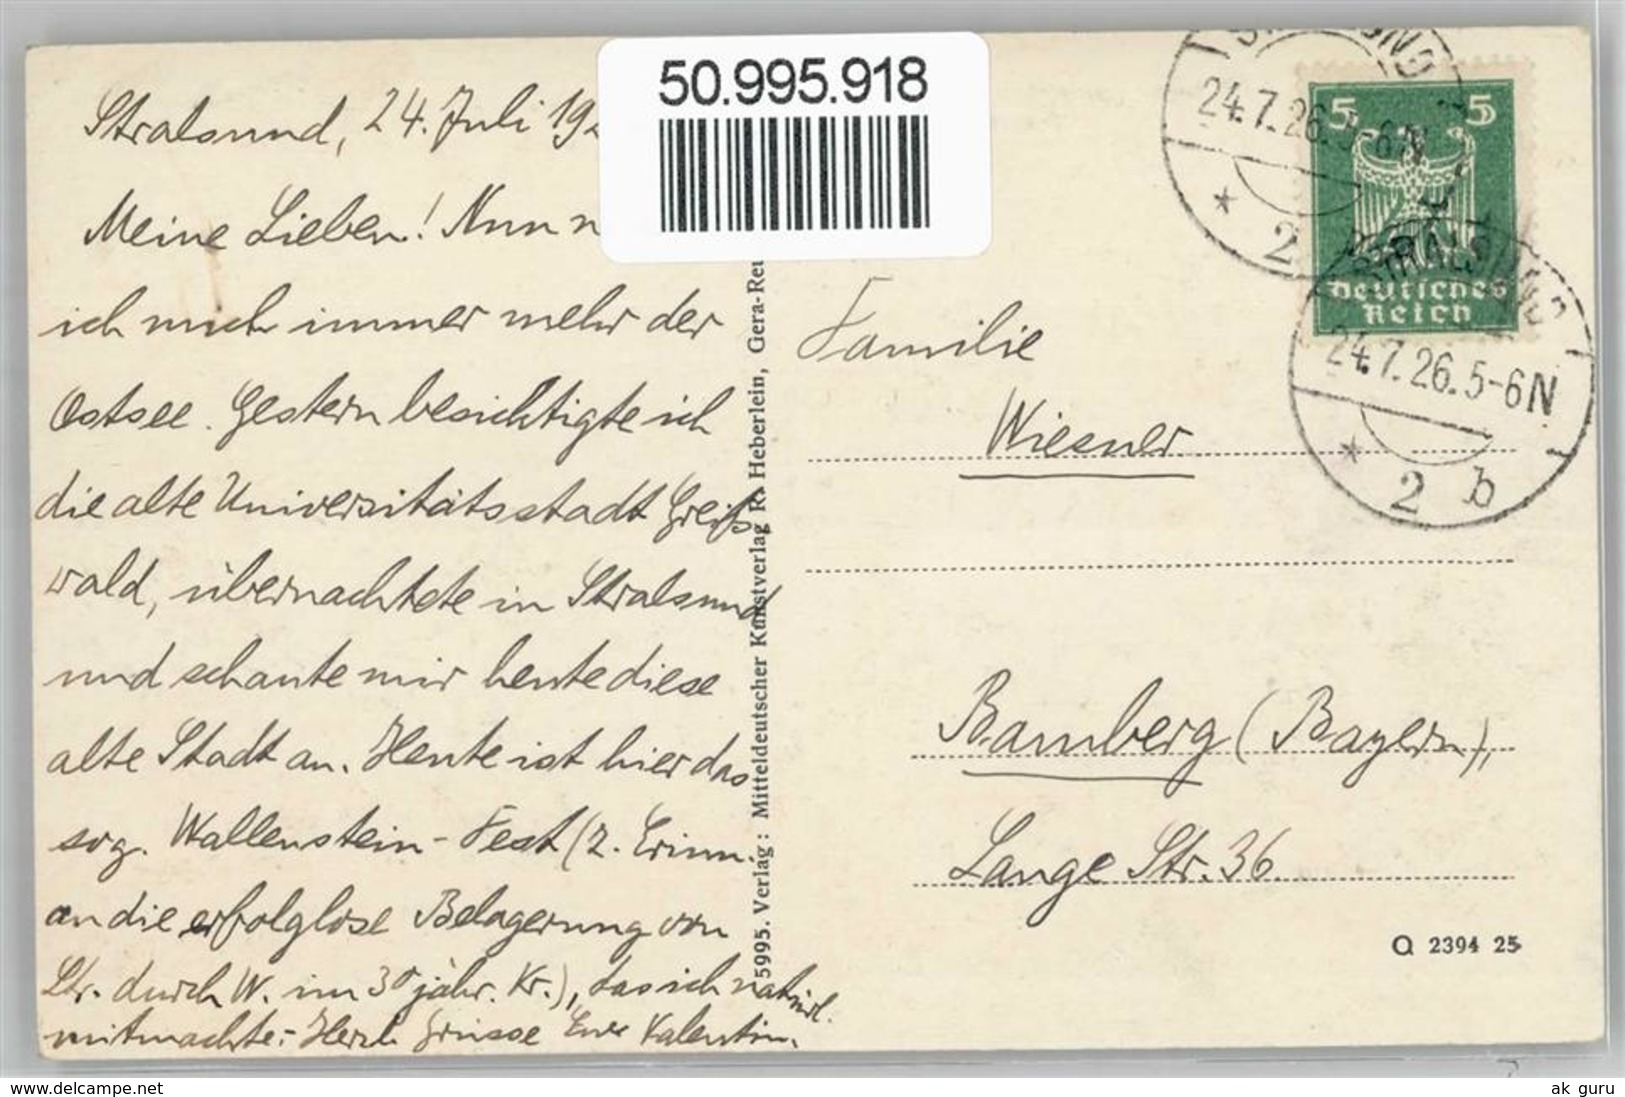 50.995.918
Stralsund, 24. Juli 19
Meine Lieben! Nun n
ich mich immer mehr der
Ostsee. Gestern besichtigte ich
die alte Universitätsstadt Greifs
wald, übernachtete in Stralsund
und schaute mir heute diese
alte Stadt an. Heute ist hier das
sog. Wallenstein-Fest (z. Erinn.
an die erfolglose Belagerung von
Str. durch W. im 30 jähr. Kr.), das ich natürl.
mitmachte.- Herzl. Grüsse Euer Valentin.
5995. Verlag: Mitteldeutscher Kunstverlag R. Heberlein, Gera-Reu
24.7.26.5-6N
* 2
5 5
Deutsches
Reich
STRALSUND
24.7.26.5-6N
* 2 b
Familie
Wiesner
Bamberg (Bayern),
Lange Str. 36.
Q 2394 25
delcampe.net
ak guru